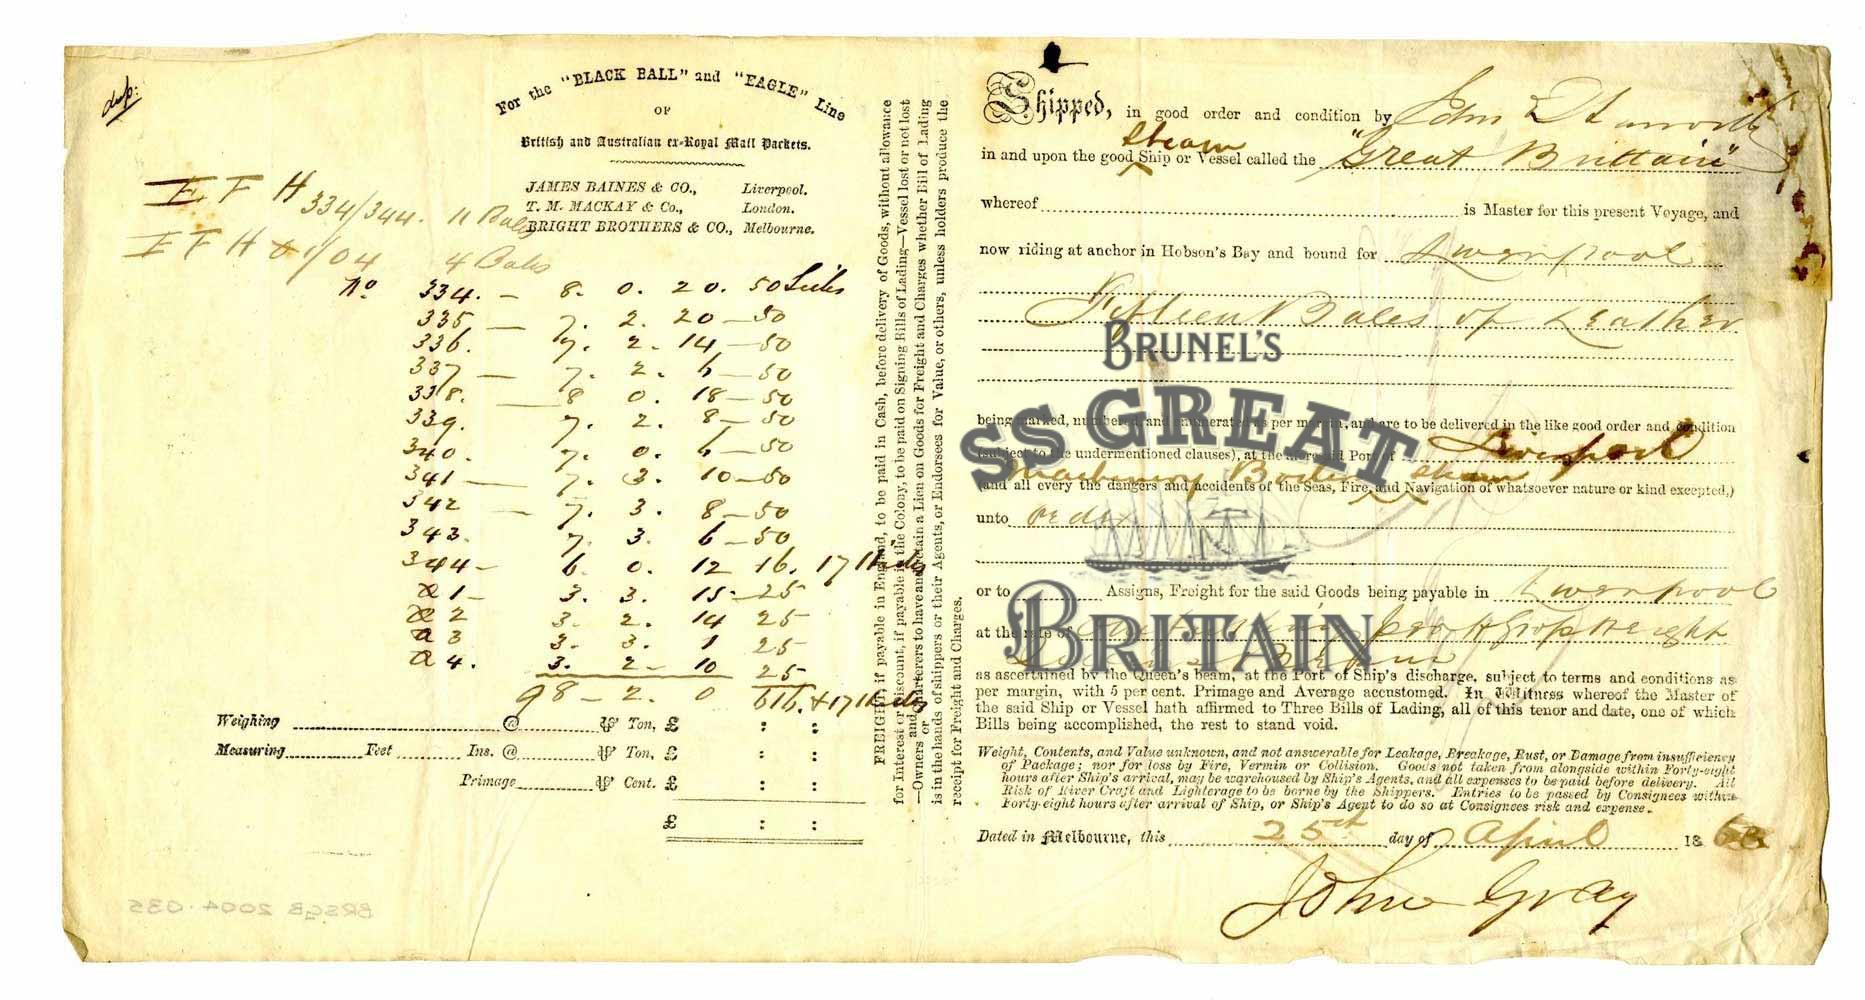 dup:
For the "BLACK BALL" and "EAGLE" Line
OF
British and Australian ex-Royal Mail Packets.
JAMES BAINES & CO., Liverpool.
T. M. MACKAY & Co., London.
BRIGHT BROTHERS & CO., Melbourne.
I F H 334/344. 11 Bales
I F H a 1/04 4 Bales
No. 334. — 8. 0. 20. 50 Sides
335 — 7. 2. 20 — 50
336. 7. 2. 14 — 50
337 — 7. 2. 6 — 50
338. — 8 0. 18 — 50
339. 7. 2. 8 — 50
340. 7. 0. 6 — 50
341 — 7. 3. 10 — 50
342 — 7. 3. 8 — 50
343. 7. 3. 6 — 50
344 — 6. 0. 12 16. 17
a 1 — 3. 3. 15 — 25
a 2 3. 2. 14 25
a 3 3. 3. 1 25
a 4. 3. 2 — 10 25
98 — 2. 0 616. + 17
Weighing @ ⅌ Ton, £ : :
Measuring Feet Ins. @ ⅌ Ton, £ : :
Primage ⅌ Cent. £ : :
£ : :
BRSGB 2004.035
FREIGHT, if payable in England, to be paid in Cash, before delivery of Goods, without allowance
for Interest or discount, if payable in the Colony, to be paid on Signing Bills of Lading—Vessel lost or not lost
—Owners and/or Charterers to have and maintain a Lien on Goods for Freight and Charges whether Bill of Lading
is in the hands of shippers or their Agents, or Endorsees for Value, or others, unless holders produce the
receipt for Freight and Charges.
Shipped, in good order and condition by John
Steam
in and upon the good Ship or Vessel called the "Great Brittain"
whereof is Master for this present Voyage, and
now riding at anchor in Hobson's Bay and bound for Liverpool
Fifteen Bales of Leather
being marked, numbered, and enumerated as per margin, and are to be delivered in the like good order and condition
(subject to the undermentioned clauses), at the aforesaid Port of Liverpool
Machinery Boilers Steam
(and all every the dangers and accidents of the Seas, Fire, and Navigation of whatsoever nature or kind excepted,)
unto order
or to Assigns, Freight for the said Goods being payable in Liverpool
at the rate of Gross Weight
as ascertained by the Queen's beam, at the Port of Ship's discharge, subject to terms and conditions as
per margin, with 5 per cent. Primage and Average accustomed. In Witness whereof the Master of
the said Ship or Vessel hath affirmed to Three Bills of Lading, all of this tenor and date, one of which
Bills being accomplished, the rest to stand void.
Weight, Contents, and Value unknown, and not answerable for Leakage, Breakage, Rust, or Damage from insufficiency
of Package; nor for loss by Fire, Vermin or Collision. Goods not taken from alongside within Forty-eight
hours after Ship's arrival, may be warehoused by Ship's Agents, and all expenses to be paid before delivery. All
Risk of River Craft and Lighterage to be borne by the Shippers. Entries to be passed by Consignees within
Forty-eight hours after arrival of Ship, or Ship's Agent to do so at Consignees risk and expense.
Dated in Melbourne, this 25th day of April 186
John Gray
BRUNEL'S
SS GREAT
BRITAIN